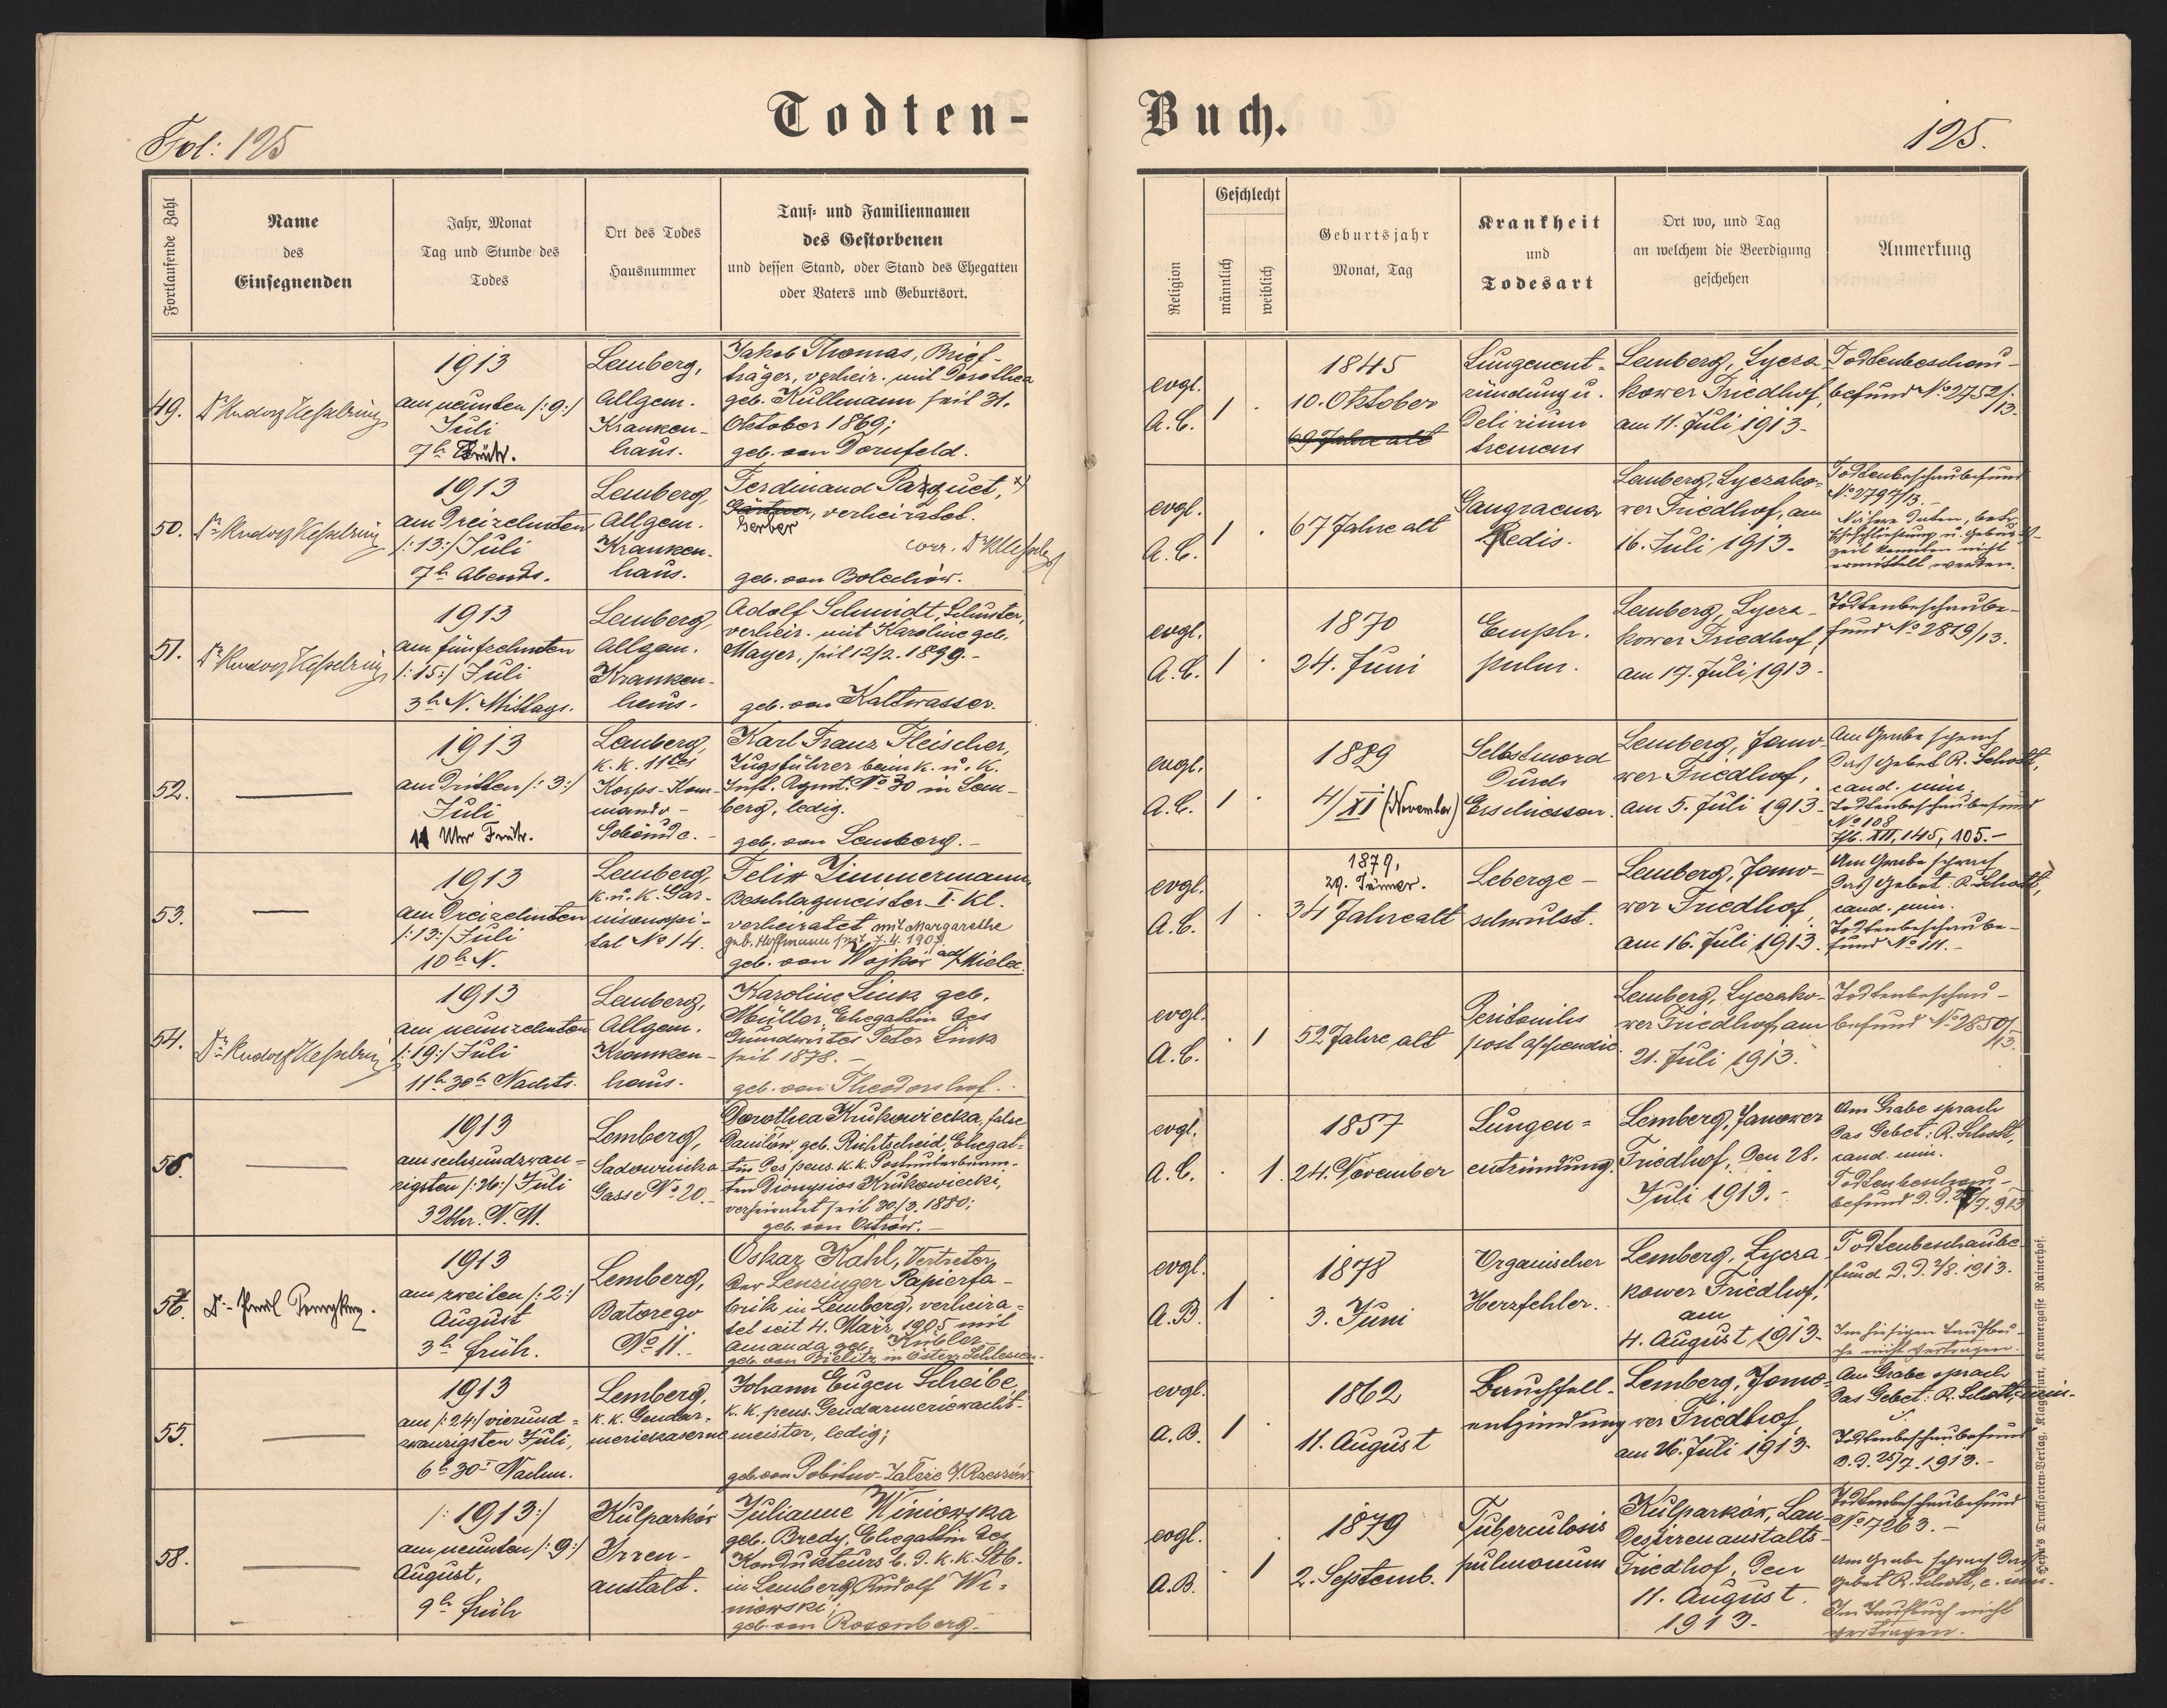 Todten-
Buch.
Fol: 125
125.
Fortlaufende Zahl
Name
des
Einsegnenden
Jahr, Monat
Tag und Stunde des
Todes
Ort des Todes
Hausnummer
Tauf- und Familiennamen
des Gestorbenen
und dessen Stand, oder Stand des Ehegatten
oder Vaters und Geburtsort.
Religion
Geschlecht
männlich
weiblich
Geburtsjahr
Monat, Tag
Krankheit
und
Todesart
Ort wo, und Tag
an welchem die Beerdigung
geschehen
Anmerkung
49.
Dr Rudolf Kesselring
1913
am neunten /:9:/
Juli
7h Früh.
Lemberg,
Allgem.
Kranken-
haus.
Jakob Thomas, Brief-
träger, verheir. mit Dorothea
geb. Kullmann seit 31.
Oktober 1869;
geb. von Dornfeld.
evgl.
A.C.
1
1845
10. Oktober
69 Jahre alt
Lungenent-
zündung u.
Delirium
tremens
Lemberg, Lycza-
kower Friedhof,
am 11. Juli 1913.
Todtenbeschau-
befund No 2752/
13.
50.
Dr Rudolf Kesselring
1913
am Dreizehnten
/:13:/ Juli
7h Abends.
Lemberg,
Allgem.
Kranken-
haus.
Ferdinand Paxquet, x)
Gärtner, verheiratet.
Gerber
corr. Dr RKesselrg
geb. von Bolechów.
evgl.
A.C.
1
67 Jahre alt
Gangraena
Pedis.
Lemberg, Lyczako-
wer Friedhof, am
16. Juli 1913.
Todtenbeschaubefund
No 2797/13.-
Nähere Daten, betr.
Eheschließung u. Geburts-
zeit konnten nicht
ermittelt werden.
51.
Dr Rudolf Kesselring
1913
am fünfzehnten
/:15:/ Juli
3h N. Mittags.
Lemberg,
Allgem.
Kranken-
haus.
Adolf Schmidt, Schuster,
verheir. mit Karoline geb.
Mayer, seit 12/2. 1899.-
geb. von Kaltwasser.
evgl.
A.C.
1
1870
24. Juni
Emph.
pulm.
Lemberg, Lycza-
kower Friedhof,
am 17. Juli 1913.
Todtenbeschaube-
fund No 2819/13.
52.
1913
am Dritten /:3:/
Juli
11 Uhr Früh.
Lemberg,
k. k. 11tes
Korps-Kom-
mando-
Gebäude.
Karl Franz Fleischer,
Zugsführer beim k. u. k.
Inft. Rgmt. No 30 in Lem-
berg, ledig.
geb. von Lemberg.-
evgl.
A.C.
1
1889
4/XI (November)
Selbstmord
Durch
Erschiessen.
Lemberg, Jano-
wer Friedhof,
am 5. Juli 1913.
Am Grabe sprach
das Gebet R. Schott,
cand. min.
Todtenbeschaubefund
No 108
Tfb. XII, 145, 105.-
53.
1913
am Dreizehnten
/:13:/ Juli
10h N.
Lemberg,
k.u.k. Gar-
nisonsspi-
tal No 14.
Felix Zimmermann
Beschlagmeister I. Kl.
verheiratet mit Margarethe
geb. Hoffmann seit 7.4.1907.
geb. von Wojków ad Mielec.
evgl.
A.C.
1
1879,
29. Jänner.
34 Jahre alt
Leberge-
schwulst.
Lemberg, Jano-
wer Friedhof,
am 16. Juli 1913.
Am Grabe sprach
das Gebet: R. Schott,
cand. min.
Todtenbeschaube-
fund No 111.-
54.
Dr Rudolf Kesselring
1913
am neunzehnten
/:19:/ Juli
11h 30h Nachts.
Lemberg,
Allgem.
Kranken-
haus.
Karoline Link geb.
Müller, Ehegattin des
Grundwirtes Peter Link
seit 1878.-
geb. von Theodorshof.
evgl.
A.C.
1
52 Jahre alt
Peritonitis
post appendic.
Lemberg, Lyczako-
wer Friedhof, am
21. Juli 1913.
Todtenbeschau-
befund No 2850/
13.
56.
1913
am sechsundzwan-
zigsten /:26:/ Juli
3 Uhr. N. M.
Lemberg,
Sadownicka
Gasse No 20.
Dorothea Krukowiecka, false
Danilów, geb. Richtscheid, Ehegat-
tin des pens. k. k. Postunterbeam-
ten Dionysios Krukowiecki,
verheiratet seit 30/3. 1880;
geb. von Ostrów.-
evgl.
A.C.
1.
1857
24. November
Lungen-
entzündung.
Lemberg, Janower
Friedhof, den 28.
Juli 1913.-
Am Grabe sprach
das Gebet: R. Schott,
cand. min.
Todtenbeschau-
befund d.d. /7.913
57.
1913
am zweiten /:2:/
August
3h früh.
Lemberg,
Batorego
No 11.-
Oskar Kahl, Vertreter
der Lenzinger Papierfa-
brik in Lemberg, verheira-
tet seit 4. März 1905 mit
Amanda geb. Kübler
geb. von Bielitz in Österr. Schlesien.
evgl.
A.B.
1
1878
3. Juni
Organischer
Herzfehler.
Lemberg, Lycza-
kower Friedhof,
am
4. August 1913.
Todtenbeschaube-
fund d.d. 2/8. 1913.
Im hiesigen Taufbu-
che nicht vertragen.
55.
1913
am /:24:/ vierund-
zwanzigsten Juli,
6h 30' Nachm.
Lemberg,
k. k. Gendar-
meriekaserne
Johann Eugen Scheibe,
k. k. pens. Gendarmeriewacht-
meister, ledig;
evgl.
A.B.
1
1862
11. August
Bauchfell-
entzündung
Lemberg, Jano-
wer Friedhof,
am 26. Juli 1913.
Am Grabe sprach
das Gebet: R. Schott,
Todtenbeschaubefund
d.d. 25/7. 1913.-
58.
/:1913:/
am neunten /:9:/
August,
9h früh
Kulparków
Irren-
anstalt.
Julianne Winiowska
geb. Bredy, Ehegattin des
Kondukteurs b. d. k. k. Stb.
in Lemberg, Rudolf Wi-
niowski;
geb. von Rosenberg.-
evgl.
A.B.
1
1879
2. Septemb.
Tuberculosis
pulmonum
Kulparków, Lan-
desirrenanstalts-
Friedhof, den
11. August.
1913.-
Todtenbeschaubefund
No 7263.-
Am Grabe sprach das
Gebet R. Schott, c. min.
Im Taufbuch nicht
vertragen.-
Drucksorten-Verlag, Klagenfurt, Kramergasse Rainerhof.